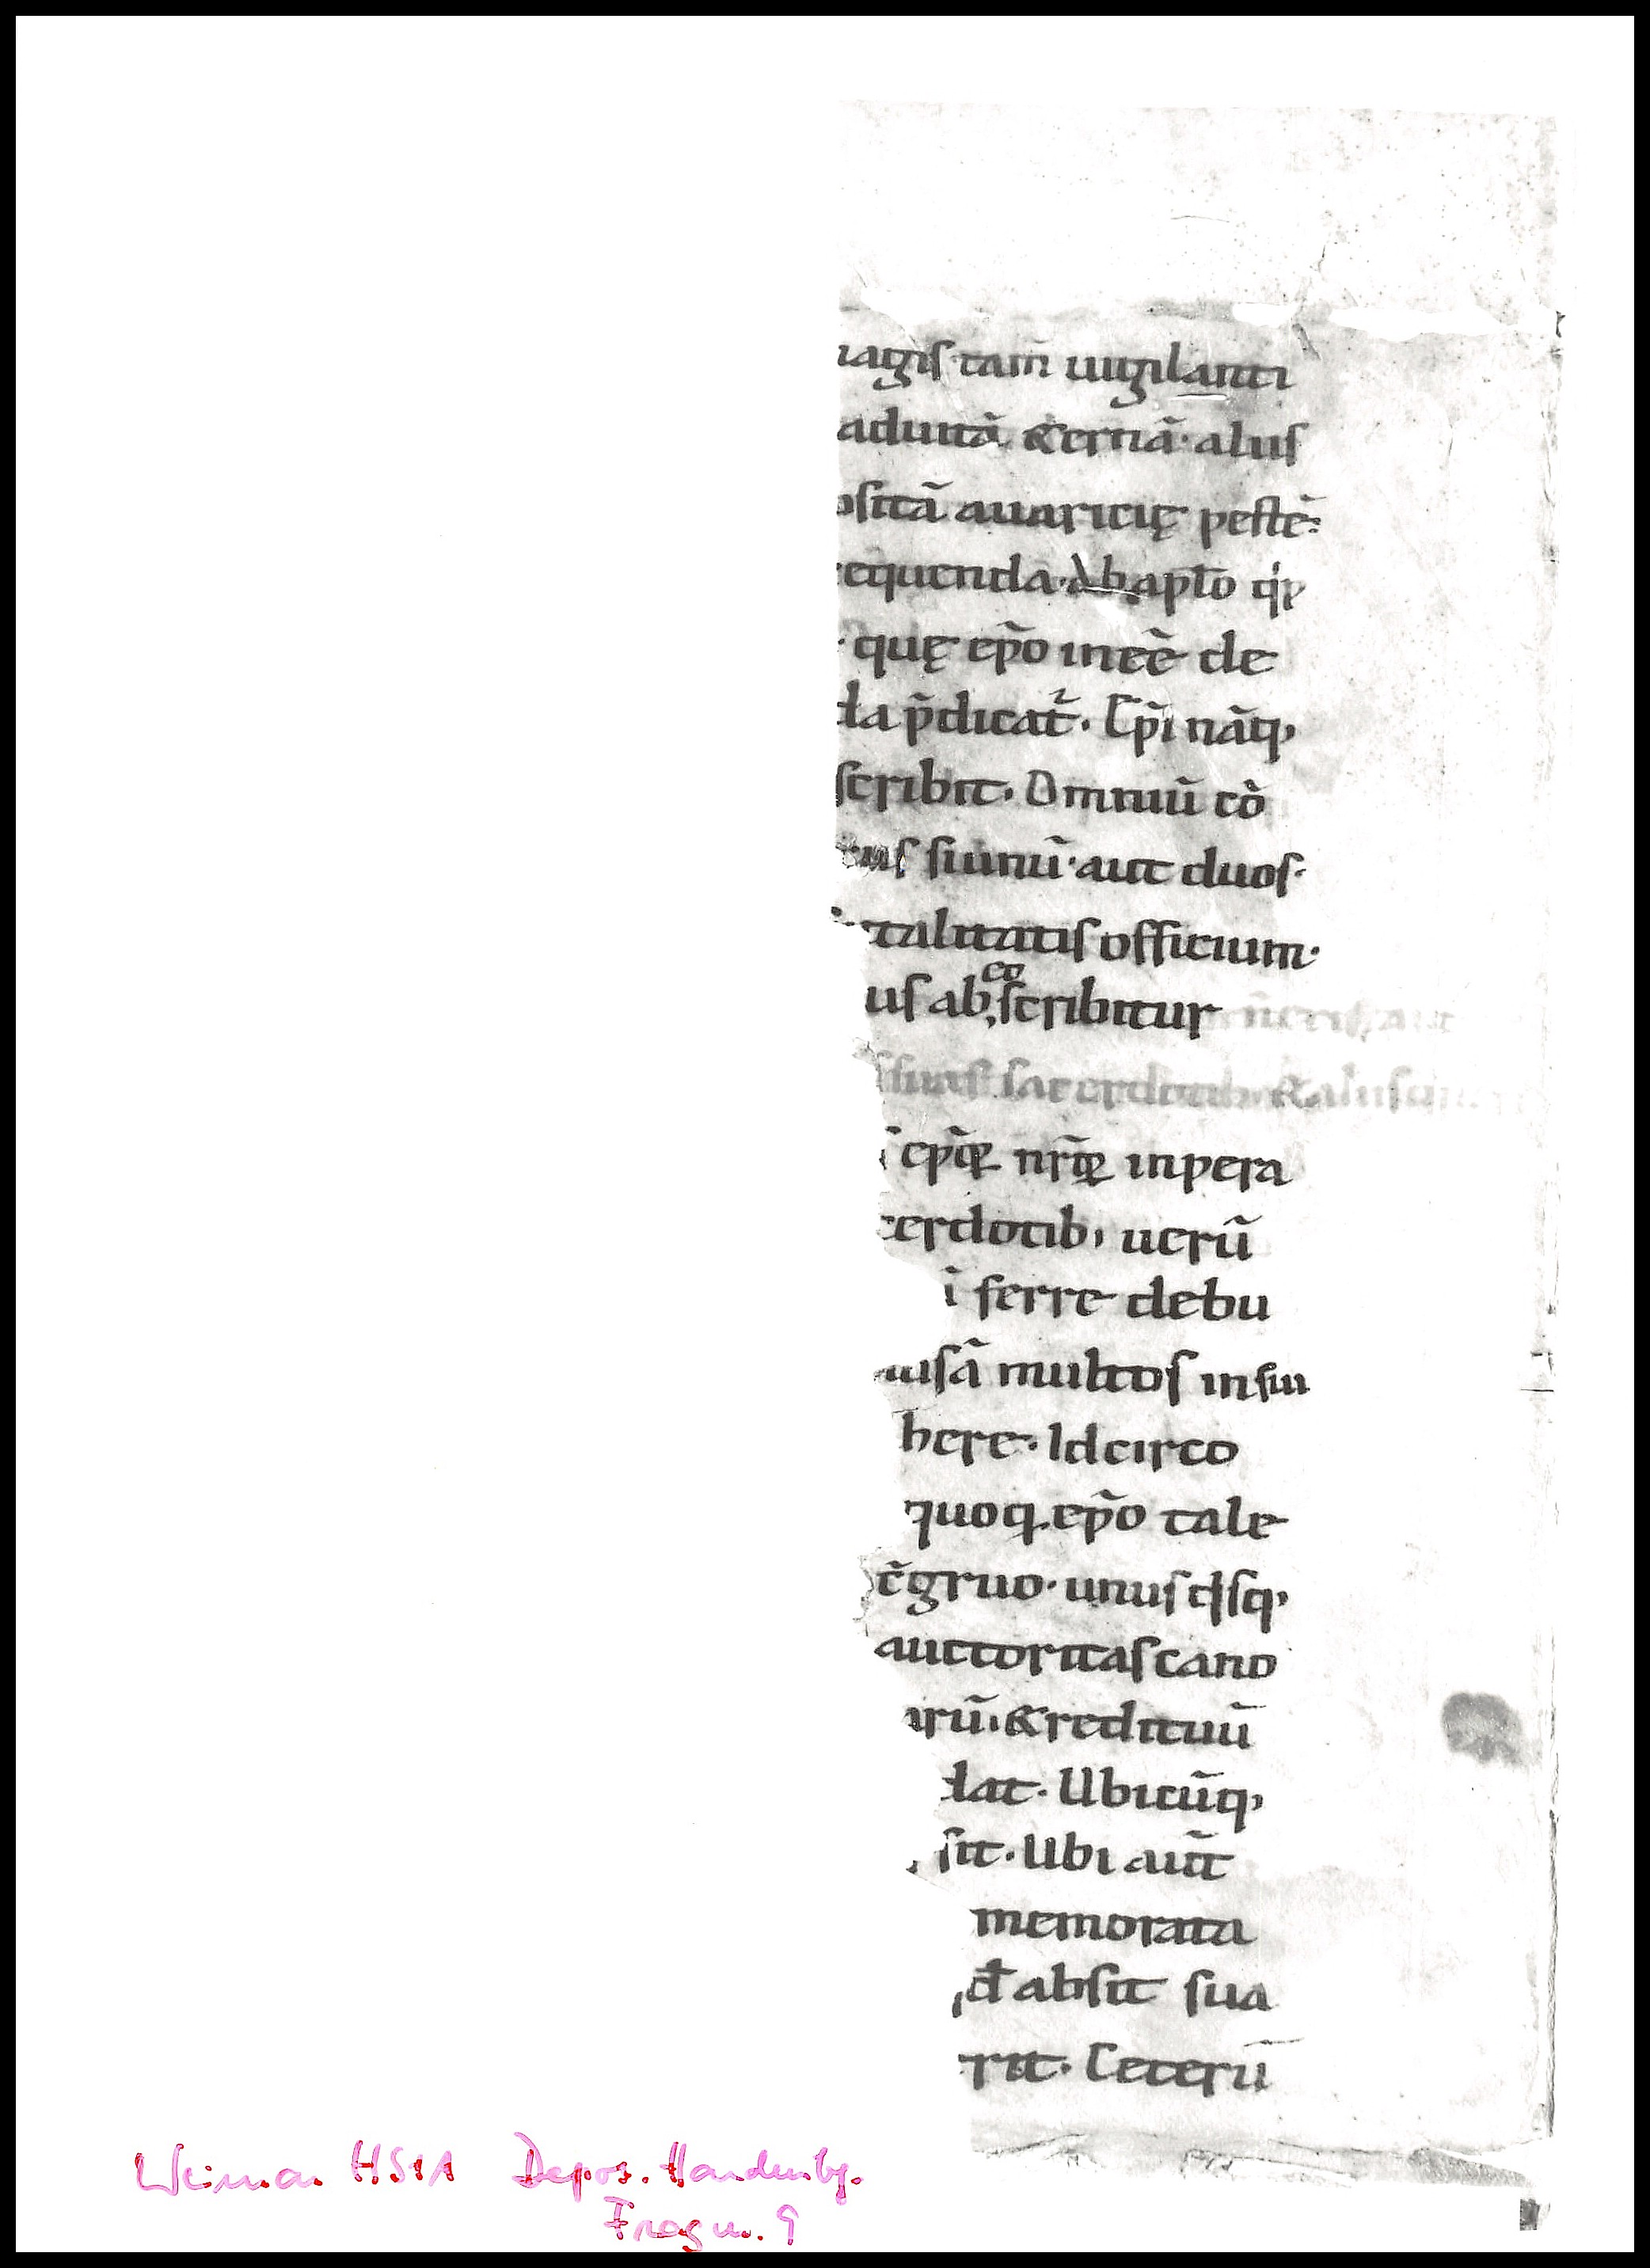 agis tam̃ uigilanti
aduitã &ernã· aliis
ositã auaricię pestẽ·
equenda· Ab aplo qͥp
· quę ep̃o ineẽ de
da p̃dicat᷑. Ep̃i nãq;
scribit. Omniũ cõ
us siunũ· aut duos·
talitatis officium·
us ab co scribitur
ssuis sacerdotib; &aliis
ep̃oꝝ nr̃oꝝ inpera
erdotib; uerũ
ferre debu
usã multos insui
here. Idcirco
quoq; ep̃o tale
c̃gruo· unusqisq;
auctoritas cano
rũ. &redituũ
dat. Ubicũq;
sit. Ubi aut̃
memorata
absit sua
rit. Ceterũ
Weimar HStA Depos. Hardenbg.
Fragm. 9